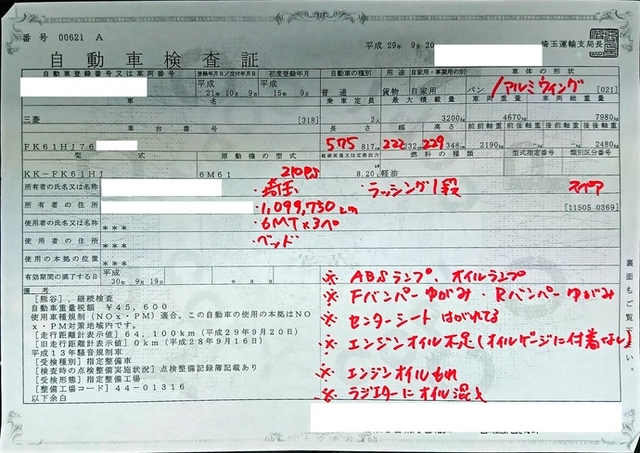 番号 00621 A
平成 29年 9月 20
埼玉運輸支局長
自動車検査証
自動車登録番号又は車両番号 登録年月日/交付年月日 初度登録年月 自動車の種別 用途 自家用・事業用の別 車体の形状
平成 21年10月 9日 平成 15年 9月 普通 貨物 自家用 バン /アルミウイング [021]
乗車定員 最大積載量 車両重量 車両総重量
三菱 [318] 2人 3200kg 4670kg 7980kg
車台番号 長さ 幅 高さ 前前軸重 前後軸重 後前軸重 後後軸重
FK61HJ76 575 817cm 222 232cm 229 348cm 2190kg -kg -kg 2480kg
型式 原動機の型式 総排気量又は定格出力 燃料の種類 型式指定番号 類別区分番号
210PS
KK-FK61HJ 6M61 8.20L 軽油
所有者の氏名又は名称 ・埼玉 ・ラッシング1段 スペア
所有者の住所 ・1,099,730km [11505 0369]
使用者の氏名又は名称 *** ・6MT×3ペ
使用者の住所 *** ・ベッド
使用の本拠の位置 ***
有効期間の満了する日 平成 30年 9月19日 年 月 日
裏面もご覧ください。
備考
[熊谷],継続検査
自動車重量税額 ¥45,600
使用車種規制(NOx・PM)適合。この自動車の使用の本拠はNO
x・PM対策地域内です。
[走行距離計表示値] 64,100km(平成29年9月20日)
[旧走行距離計表示値] 0km(平成28年9月16日)
平成13年騒音規制車
[受検種別] 指定整備車
[検査時の点検整備実施状況] 点検整備記録簿記載あり
[受検形態] 指定整備工場
[整備工場コード] 44-01316
以下余白
※ ABSランプ、オイルランプ
※ Fバンパーゆがみ・Rバンパーゆがみ
※ センターシート はがれてる
※ エンジンオイル不足(オイルゲージに付着なし)
※ エンジンオイルもれ
※ ラジエターにオイル混入